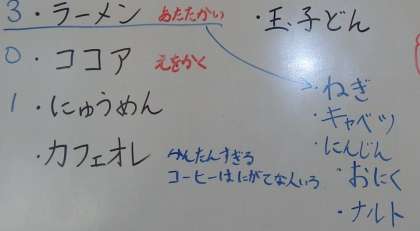 3・ラーメン あたたかい
0・ココア えをかく
1・にゅうめん
・カフェオレ かんたんすぎる
コーヒーはにがてな人いろ
・玉子どん
・ねぎ
・キャベツ
・にんじん
・おにく
・ナルト